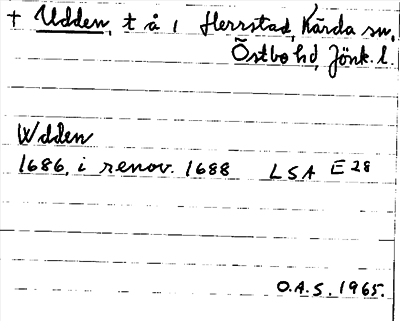 + Udden, t å 1 Herrstad, Kärda sn,
Östbo hd, Jönk. l.
Wdden
1686, i renov. 1688 LSA E 28
O.A.S. 1965.